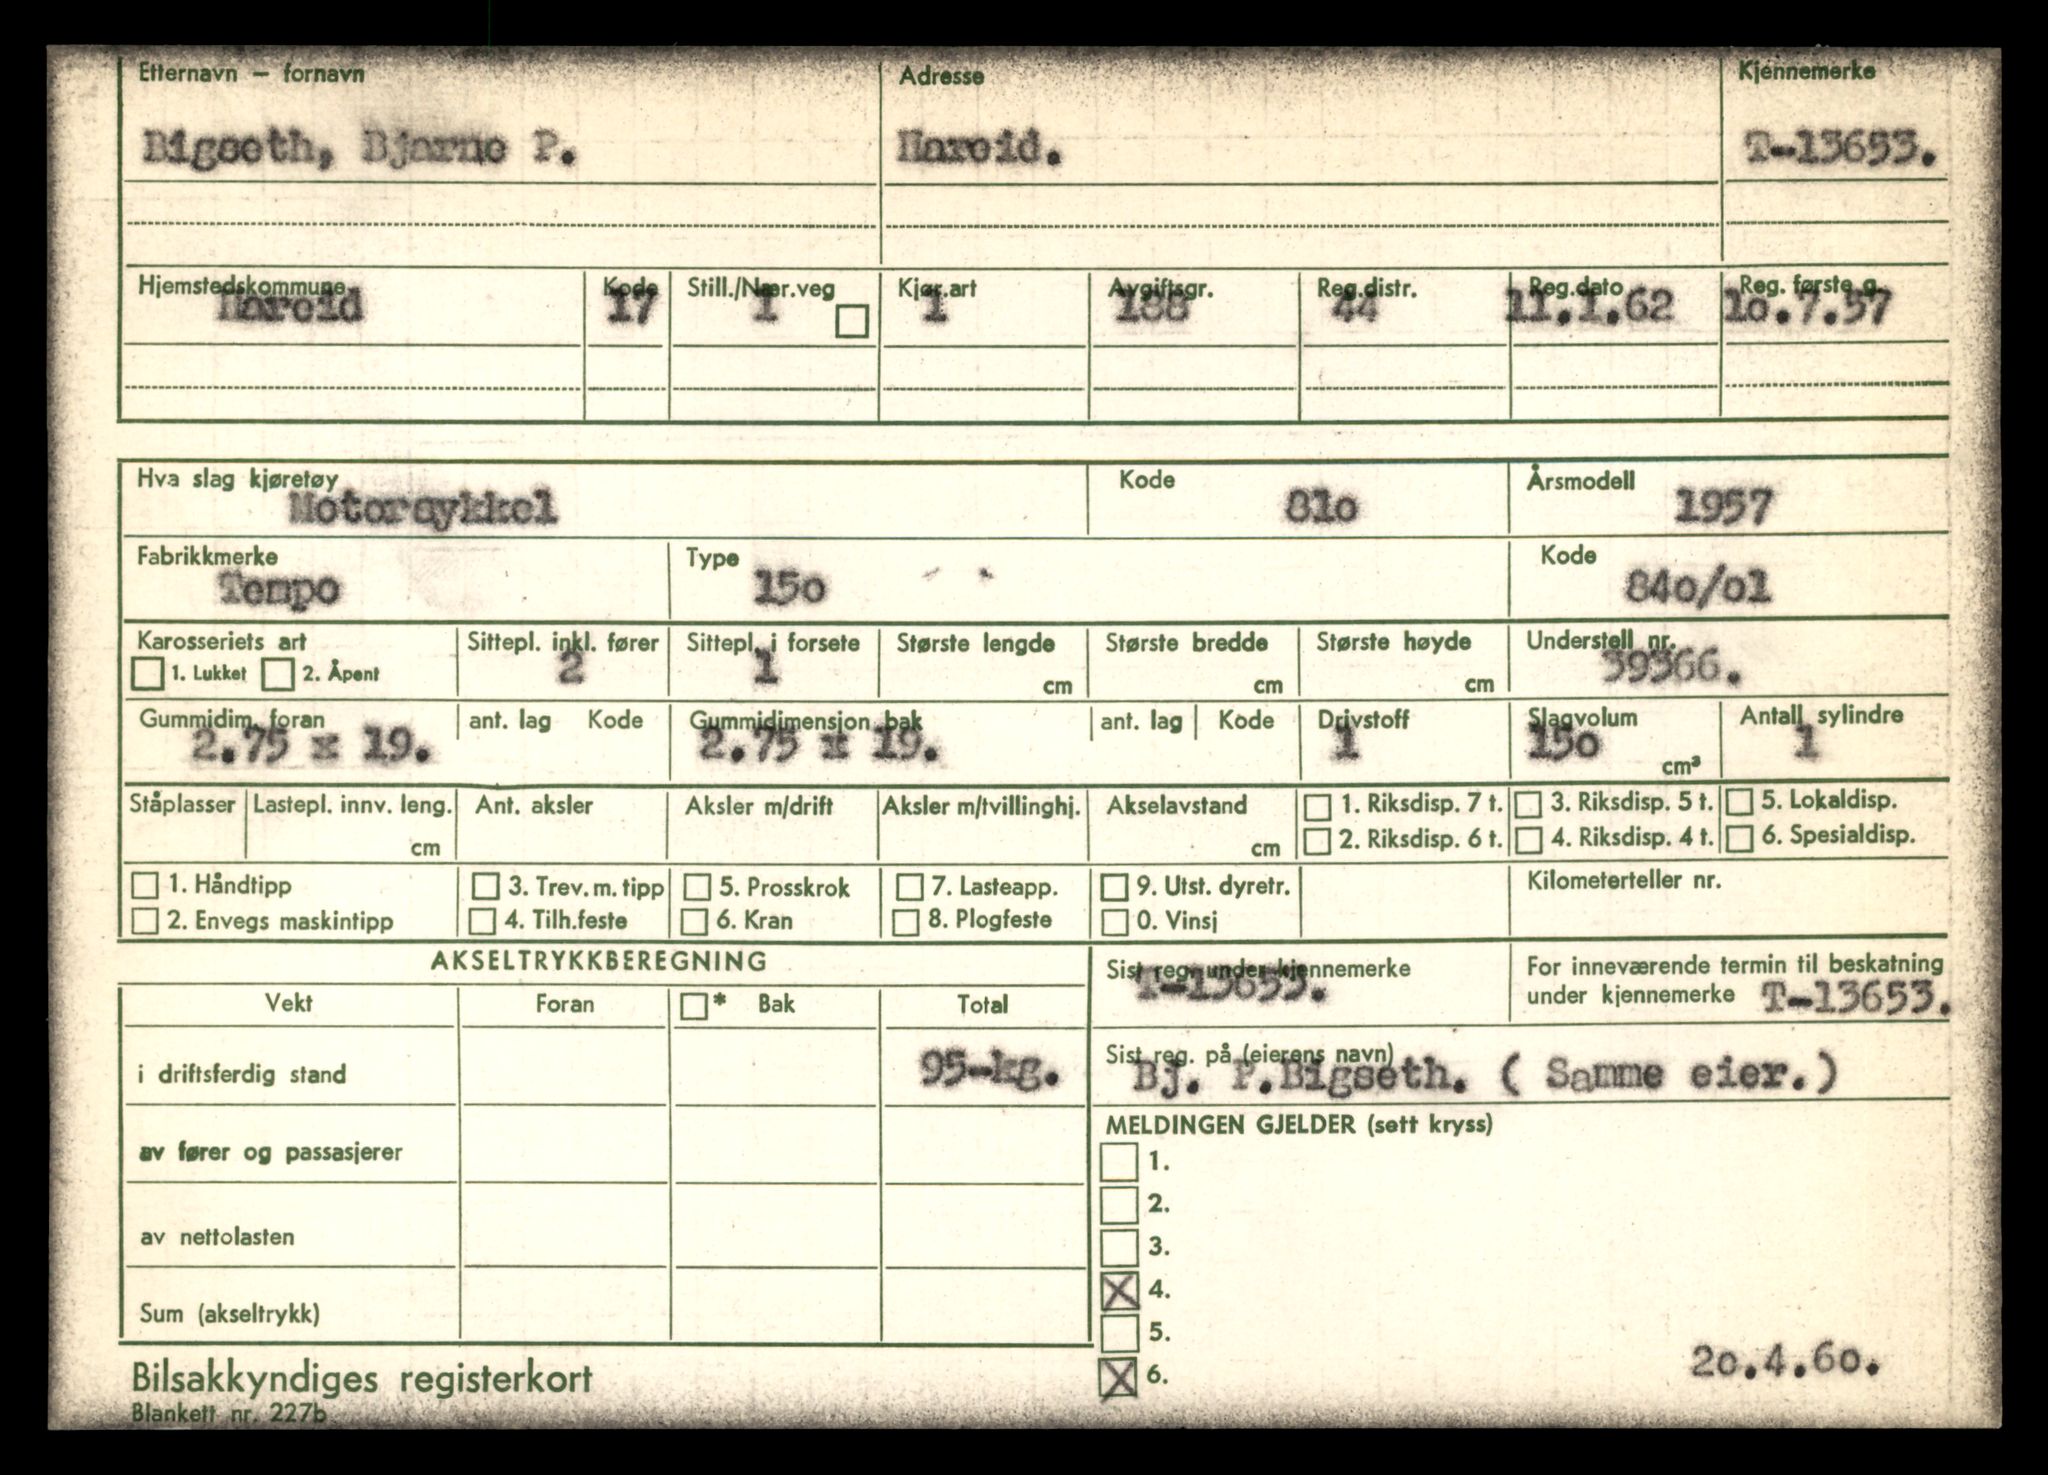 Etternavn — fornavn Adresse Kjennemerke
Bigseth, Bjarne P. Hareid. T-13653.
Hjemstedskommune Kode Still./Nær.veg Kjør.art Avgiftsgr. Reg.distr. Reg.dato Reg. første g.
Hareid 17 1 1 188 44 11.1.62 1o.7.57
Hva slag kjøretøy Kode Årsmodell
Motorsykkel 81o 1957
Fabrikkmerke Type Kode
Tempo 15o 84o/o1
Karosseriets art Sittepl. inkl. fører Sittepl. i forsete Største lengde Største bredde Største høyde Understell nr.
1. Lukket 2. Åpent 2 1 cm cm cm 39366.
Gummidim. foran ant. lag Kode Gummidimensjon bak ant. lag Kode Drivstoff Slagvolum Antall sylindre
2.75 x 19. 2.75 x 19. 1 15o cm³ 1
Ståplasser Lastepl. innv. leng. Ant. aksler Aksler m/drift Aksler m/tvillinghj. Akselavstand 1. Riksdisp. 7 t. 3. Riksdisp. 5 t. 5. Lokaldisp.
cm cm 2. Riksdisp. 6 t. 4. Riksdisp. 4 t. 6. Spesialdisp.
1. Håndtipp 3. Trev. m. tipp 5. Prosskrok 7. Lasteapp. 9. Utst. dyretr. Kilometerteller nr.
2. Envegs maskintipp 4. Tilh.feste 6. Kran 8. Plogfeste 0. Vinsj
AKSELTRYKKBEREGNING Sist reg. under kjennemerke For inneværende termin til beskatning
T-13653. under kjennemerke T-13653.
Vekt Foran * Bak Total
Sist reg. på (eierens navn)
i driftsferdig stand 95-kg. Bj. P.Bigseth. ( Samme eier.)
MELDINGEN GJELDER (sett kryss)
av fører og passasjerer 1.
2.
av nettolasten 3.
X 4.
Sum (akseltrykk) 5.
X 6. 2o.4.6o.
Bilsakkyndiges registerkort
Blankett nr. 227b